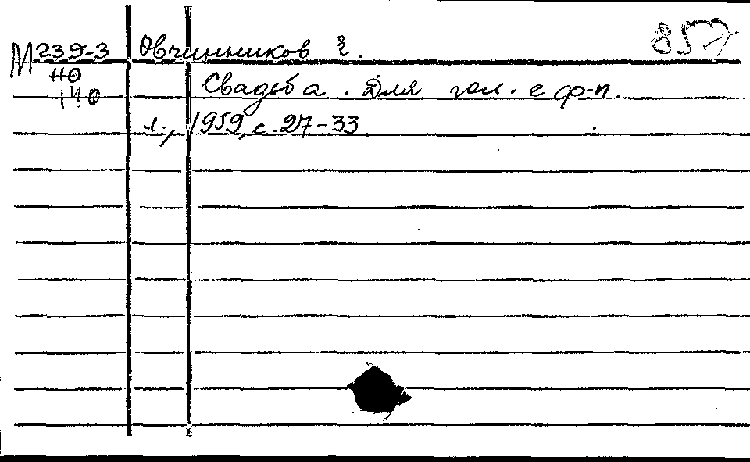 М239-3 Овчинников 857
но Свадьба. Для гол. с ф-п.
140
Л., 1959, с. 27-33